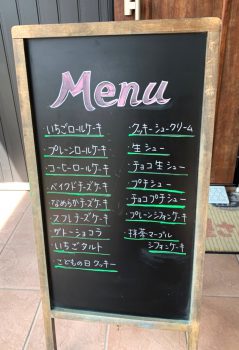 Menu
・いちごロールケーキ
・プレーンロールケーキ
・コーヒーロールケーキ
・ベイクドチーズケーキ
・なめらかチーズケーキ
・スフレチーズケーキ
・ガトーショコラ
・いちごタルト
・こどもの日クッキー
・クッキーシュークリーム
・生シュー
・チョコ生シュー
・プチシュー
・チョコプチシュー
・プレーンシフォンケーキ
・抹茶マーブル
シフォンケーキ